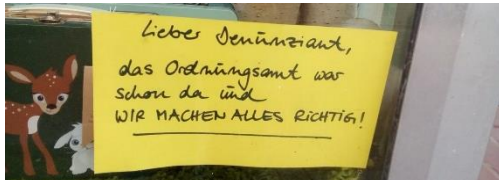 Lieber Denunziant,
das Ordnungsamt war
schon da und
WIR MACHEN ALLES RICHTIG!